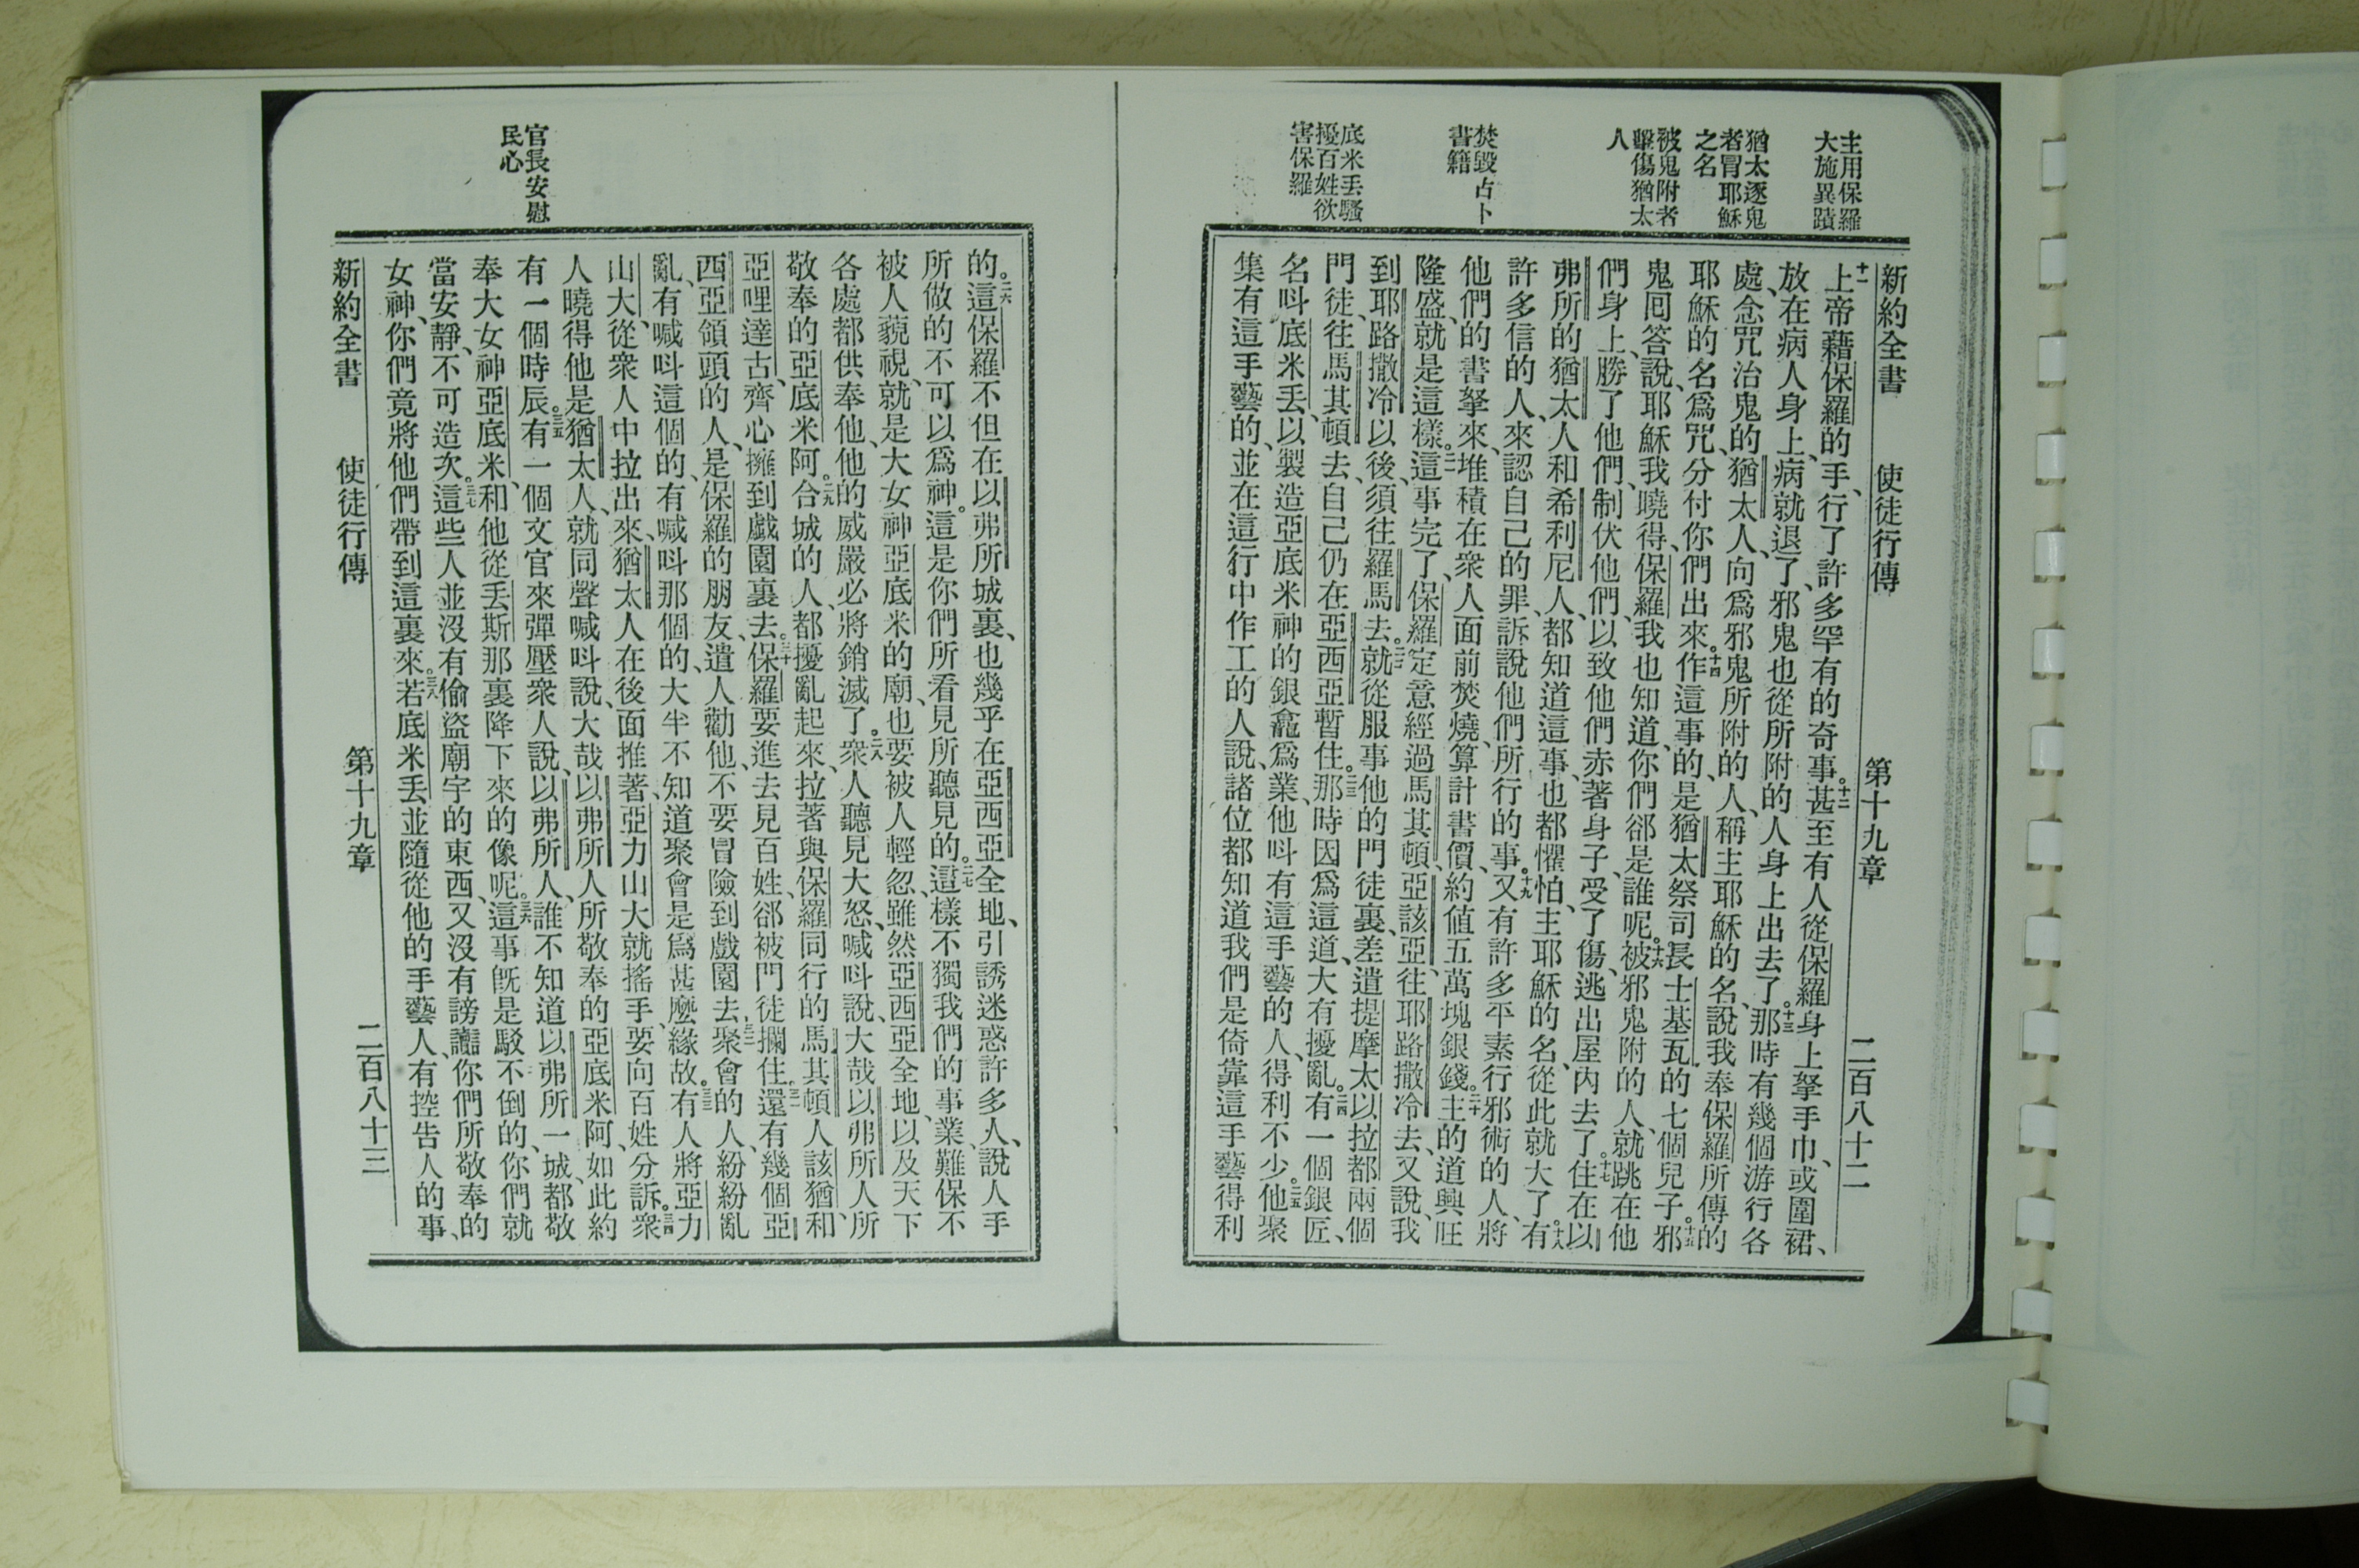 主用保羅
大施異蹟
猶太逐鬼
者冒耶穌
之名
被鬼附者
毉傷猶太
人
焚毀占卜
書籍
底米丟騷
擾百姓欲
害保羅
新約全書 使徒行傳 第十九章 二百八十二
十一上帝藉保羅的手、行了許多罕有的奇事。十二甚至有人從保羅身上拏手巾、或圍裙、
放在病人身上、病就退了、邪鬼也從所附的人身上出去了。十三那時有幾個游行各
處、念咒治鬼的猶太人、向爲邪鬼所附的人、稱主耶穌的名、說我奉保羅所傳的
耶穌的名爲咒、分付你們出來。十四作這事的、是猶太祭司長士基瓦的七個兒子。十五邪
鬼囘答說、耶穌我曉得、保羅我也知道、你們郤是誰呢。十六被邪鬼附的人、就跳在他
們身上、勝了他們、制伏他們、以致他們赤著身子、受了傷、逃出屋內去了。十七住在以
弗所的猶太人和希利尼人、都知道這事、也都懼怕、主耶穌的名、從此就大了。十八有
許多信的人、來認自己的罪、訴說他們所行的事。十九又有許多平素行邪術的人、將
他們的書拏來、堆積在衆人面前焚燒、算計書價、約値五萬塊銀錢。二十主的道興旺
隆盛、就是這樣。二一這事完了、保羅定意經過馬其頓、亞該亞、往耶路撒冷去、又說、我
到耶路撒冷以後、須往羅馬去。二二就從服事他的門徒裏、差遣提摩太以拉都兩個
門徒、往馬其頓去、自己仍在亞西亞暫住。二三那時因爲這道、大有擾亂。二四有一個銀匠、
名呌底米丟、以製造亞底米神的銀龕爲業、他呌有這手藝的人、得利不少。二五他聚
集有這手藝的、並在這行中作工的人說、諸位都知道我們是倚靠這手藝得利
官長安慰
民心
的。二六這保羅不但在以弗所城裏、也幾乎在亞西亞全地、引誘迷惑許多人、說人手
所做的不可以爲神。這是你們所看見所聽見的。二七這樣不獨我們的事業、難保不
被人藐視、就是大女神亞底米的廟、也要被人輕忽、雖然亞西亞全地、以及天下
各處都供奉他、他的威嚴必將銷滅了。二八衆人聽見大怒、喊呌說、大哉以弗所人所
敬奉的亞底米阿。二九合城的人、都擾亂起來、拉著與保羅同行的馬其頓人該猶、和
亞哩達古、齊心擁到戲園裏去。三十保羅要進去見百姓、郤被門徒攔住。三一還有幾個亞
西亞領頭的人、是保羅的朋友、遣人勸他、不要冒險到戲園去。三二聚會的人、紛紛亂
亂、有喊呌這個的、有喊呌那個的、大半不知道聚會是爲甚麼緣故。三三有人將亞力
山大、從衆人中拉出來、猶太人在後面推著、亞力山大就搖手、要向百姓分訴。三四衆
人曉得他是猶太人、就同聲喊呌說、大哉以弗所人所敬奉的亞底米阿、如此約
有一個時辰。三五有一個文官來彈壓衆人說、以弗所人、誰不知道以弗所一城、都敬
奉大女神亞底米、和他從丟斯那裏降下來的像呢。三六這事旣是駁不倒的、你們就
當安靜、不可造次。三七這些人並沒有偷盜廟宇的東西、又沒有謗讟你們所敬奉的
女神、你們竟將他們帶到這裏來。三八若底米丟並隨從他的手藝人、有控告人的事、
新約全書 使徒行傳 第十九章 二百八十三